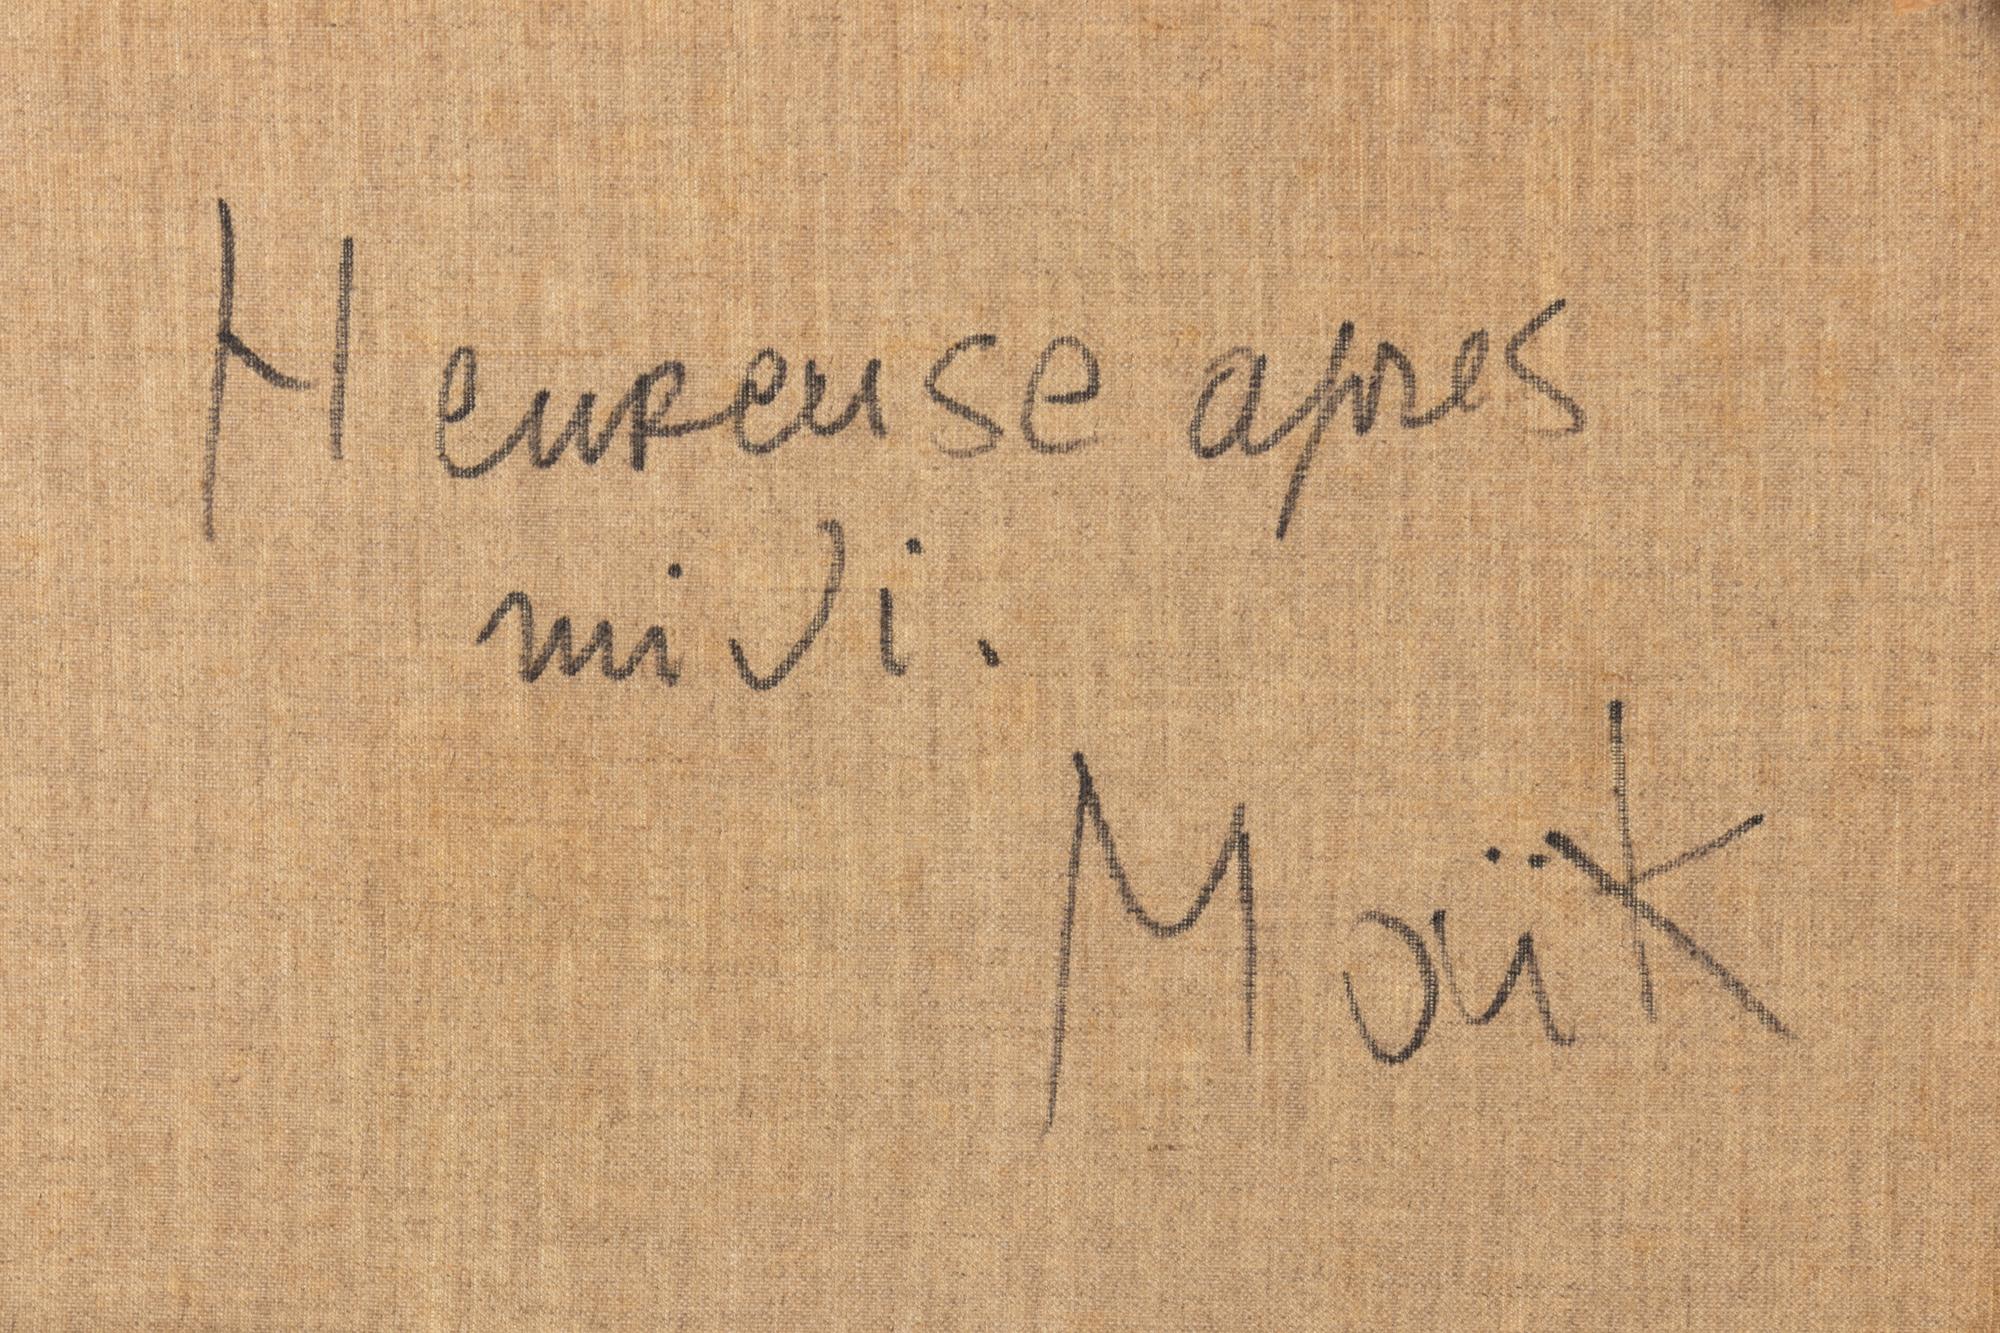 Heureuse apres
midi.
Moük